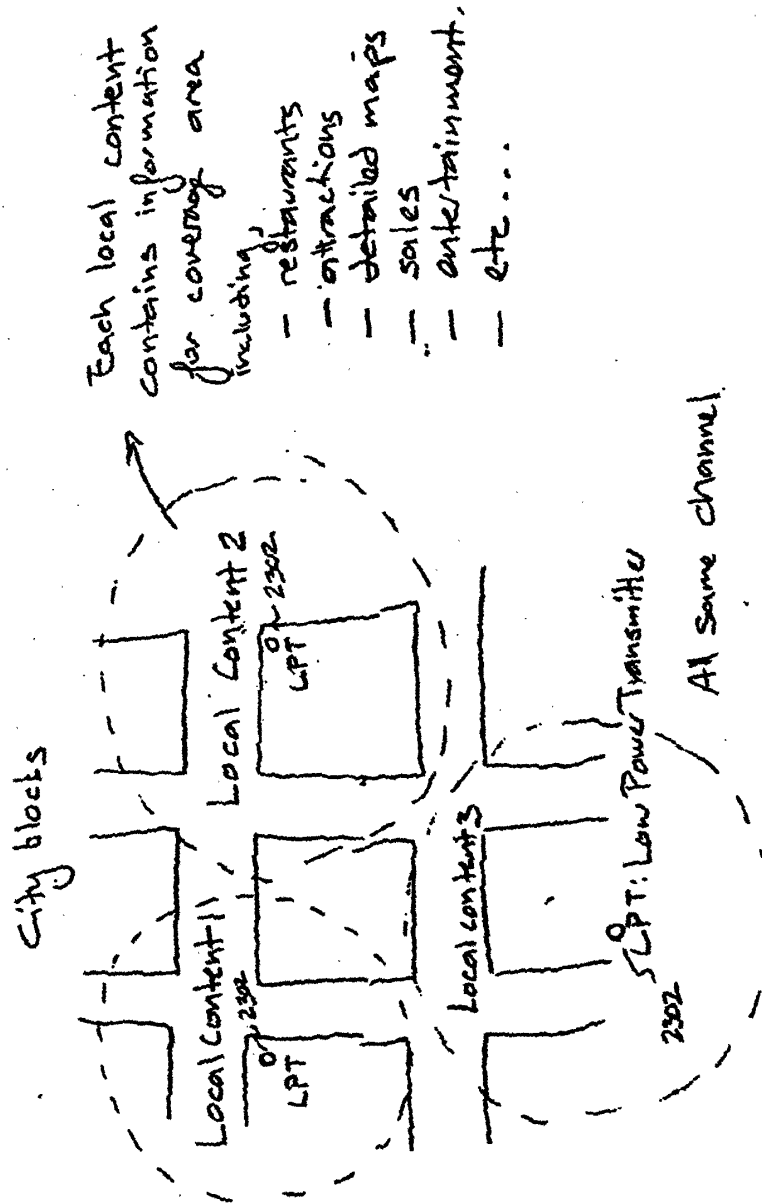 City blocks
Local Content 11
2302
LPT
Local Content 2
2302
LPT
Local content 3
2302
LPT: Low Power Transmitter
All same channel
Each local content
contains information
for coverage area
including,
- restaurants
- attractions
- detailed maps
- sales
- entertainment.
- etc....